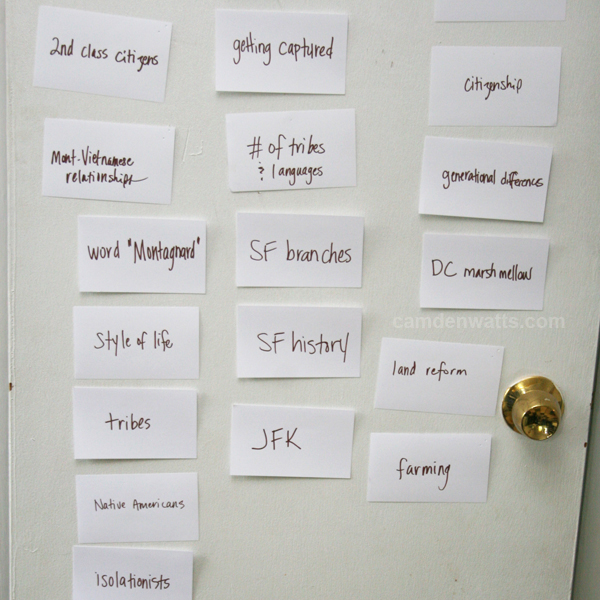 2nd class citizens
Mont-Vietnamese
relationships
word "Montagnard"
Style of life
tribes
Native Americans
isolationists
getting captured
# of tribes
& languages
SF branches
SF history
JFK
citizenship
generational differences
DC marshmellow
land reform
farming
camdenwatts.com